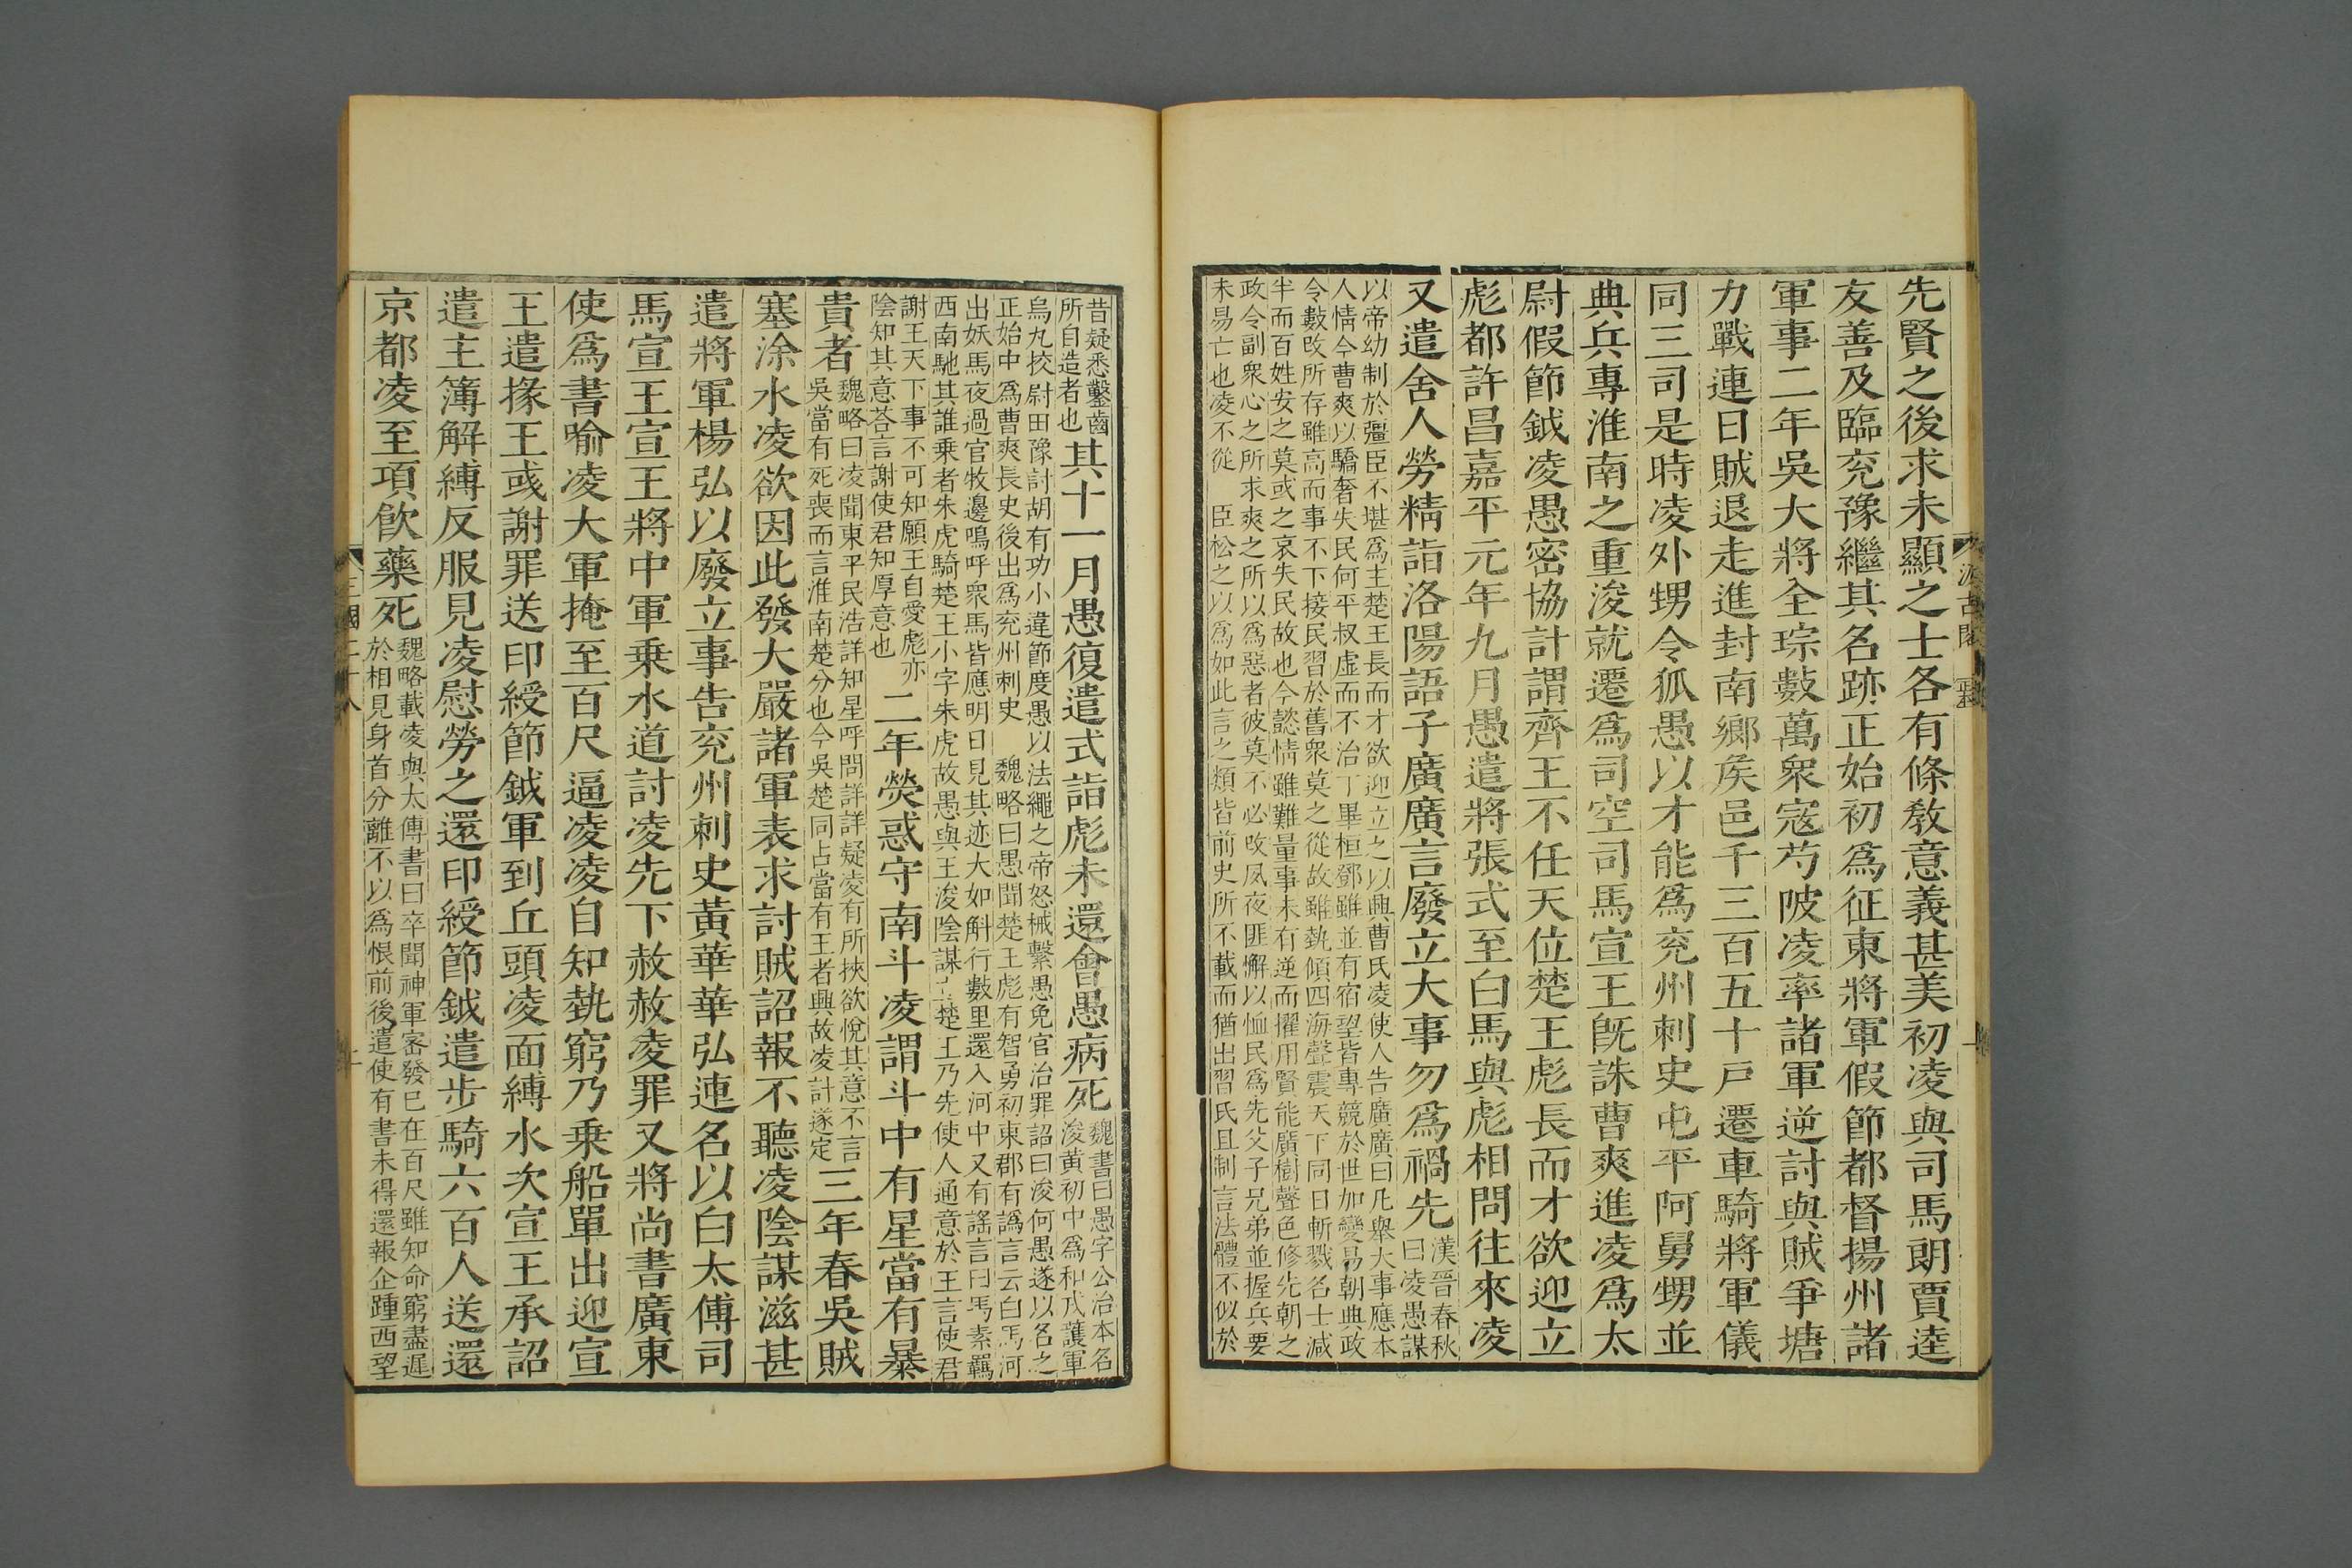 先賢之後求未顯之士各有條教意義甚美初凌與司馬朗賈逵
友善及臨兗豫繼其名跡正始初爲征東將軍假節都督揚州諸
軍事二年吳大將全琮數萬衆寇芍陂凌率諸軍逆討與賊爭塘
力戰連日賊退走進封南鄉矦邑千三百五十戶遷車騎將軍儀
同三司是時凌外甥令狐愚以才能爲兗州刺史屯平阿舅甥並
典兵專淮南之重浚就遷爲司空司馬宣王旣誅曹爽進凌爲太
尉假節鉞凌愚密協計謂齊王不任天位楚王彪長而才欲迎立
彪都許昌嘉平元年九月愚遣將張式至白馬與彪相問往來凌
又遣舍人勞精詣洛陽語子廣廣言廢立大事勿爲禍先
漢晉春秋
曰凌愚謀
以帝幼制於彊臣不堪爲主楚王長而才欲迎立之以興曹氏凌使人告廣廣曰凡舉大事應本
人情今曹爽以驕奢失民何平叔虛而不治丁畢桓鄧雖並有宿望皆專競於世加變易朝典政
令數攺所存雖高而事不下接民習於舊衆莫之從故雖埶傾四海聲震天下同日斬戮名士減
半而百姓安之莫或之哀失民故也今懿情雖難量事未有逆而擢用賢能廣樹聲色修先朝之
政令副衆心之所求爽之所以爲惡者彼莫不必攺夙夜匪懈以恤民爲先父子兄弟並握兵要
未易亡也凌不從 臣松之以爲如此言之類皆前史所不載而猶出習氏且制言法體不似於
昔疑悉鑿齒
所自造者也
其十一月愚復遣式詣彪未還會愚病死
魏書曰愚字公治本名
浚黃初中爲和戎護軍
烏九校尉田豫討胡有功小違節度愚以法繩之帝怒械繫愚免官治罪詔曰浚何愚遂以名之
正始中爲曹爽長史後出爲兗州刺史 魏略曰愚聞楚王彪有智勇初東郡有譌言云白馬河
出妖馬夜過官牧邊鳴呼衆馬皆應明日見其迹大如斛行數里還入河中又有謠言曰馬素羈
西南馳其誰乗者朱虎騎楚王小字朱虎故愚與王浚陰謀立楚王乃先使人通意於王言使君
謝王天下事不可知願王自愛彪亦
陰知其意荅言謝使君知厚意也
二年熒惑守南斗凌謂斗中有星當有暴
貴者
魏略曰凌聞東平民浩詳知星呼問詳詳疑凌有所挾欲悅其意不言
吳當有死喪而言淮南楚分也今吳楚同占當有王者興故凌計遂定
三年春吳賊
塞涂水凌欲因此發大嚴諸軍表求討賊詔報不聽凌陰謀滋甚
遣將軍楊弘以廢立事告兗州刺史黃華華弘連名以白太傅司
馬宣王宣王將中軍乗水道討凌先下赦赦凌罪又將尚書廣東
使爲書喻凌大軍掩至百尺逼凌凌自知埶窮乃乗船單出迎宣
王遣掾王彧謝罪送印綬節鉞軍到丘頭凌面縛水次宣王承詔
遣主簿解縛反服見凌慰勞之還印綬節鉞遣步騎六百人送還
京都凌至項飲藥死
魏略載凌與太傅書曰卒聞神軍密發已在百尺雖知命窮盡遲
於相見身首分離不以爲恨前後遣使有書未得還報企踵西望
三國二十八